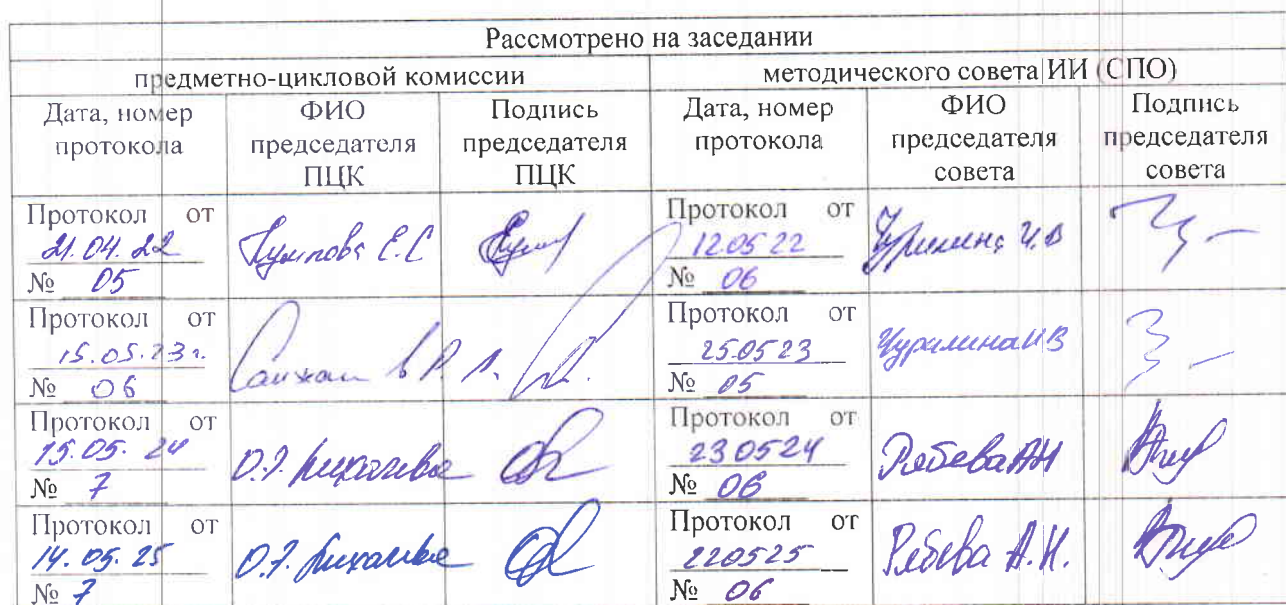 Рассмотрено на заседании
предметно-цикловой комиссии методического совета ИИ (СПО)
Дата, номер протокола ФИО председателя ПЦК Подпись председателя ПЦК Дата, номер протокола ФИО председателя совета Подпись председателя совета
Протокол от
21.04.22
№ 05
Е.С
Протокол от
12.05 22
№ 06
И.В
Протокол от
15.05.23г.
№ 06
Протокол от
25.05 23
№ 05
Чурилина И В
Протокол от
15.05. 24
№ 7
Протокол от
23 05 24
№ 06
Рябева АН
Протокол от
14.05.25
№ 7
Протокол от
22 05 25
№ 06
Рябева А.Н.